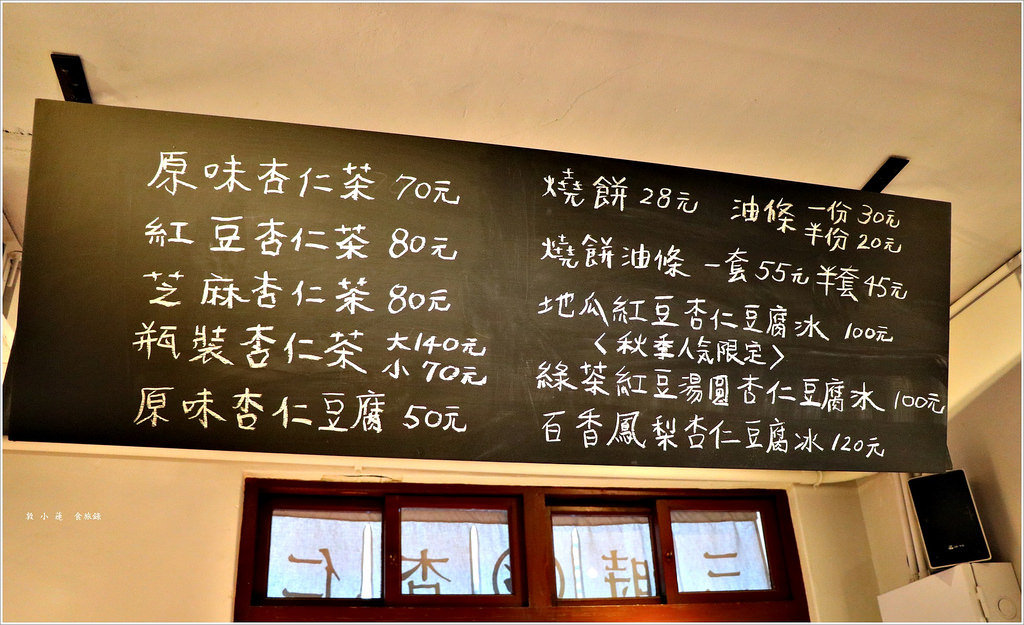 原味杏仁茶 70元
紅豆杏仁茶 80元
芝麻杏仁茶 80元
瓶裝杏仁茶 大140元
小 70元
原味杏仁豆腐 50元
燒餅 28元
油條 一份 30元
半份 20元
燒餅油條 一套 55元 半套 45元
地瓜紅豆杏仁豆腐冰 100元
〈秋季人氣限定〉
綠茶紅豆湯圓杏仁豆腐冰 100元
百香鳳梨杏仁豆腐冰 120元
敦小蓮 食旅錄
三時
杏仁